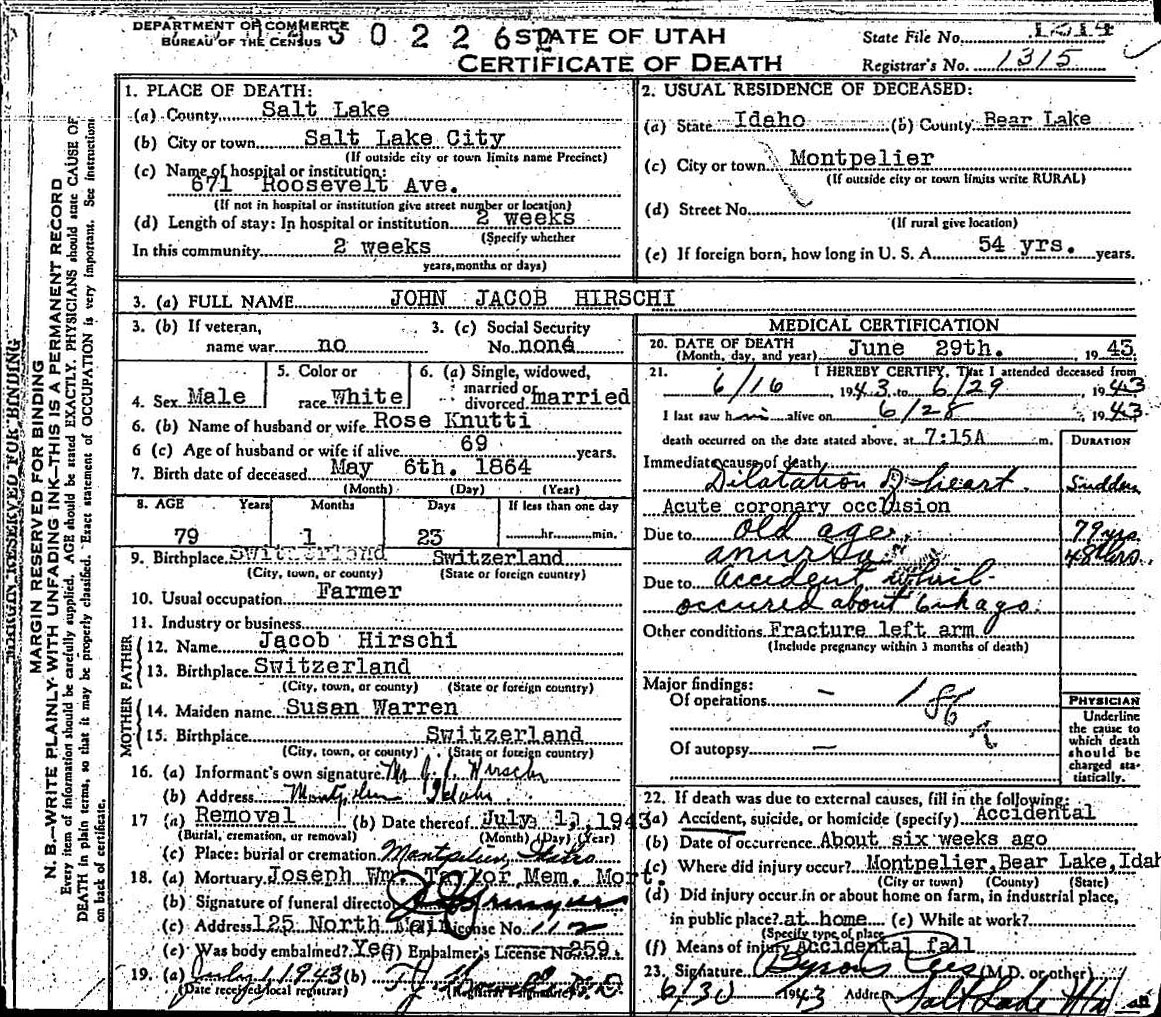 DEPARTMENT OF COMMERCE
BUREAU OF THE CENSUS
STATE OF UTAH
CERTIFICATE OF DEATH
State File No.
Registrar's No. 1315
MARGIN RESERVED FOR BINDING
MARGIN RESERVED FOR BINDING
N. B.—WRITE PLAINLY WITH UNFADING INK—THIS IS A PERMANENT RECORD
Every item of information should be carefully supplied. AGE should be stated EXACTLY. PHYSICIANS should state CAUSE OF
DEATH in plain terms, so that it may be properly classified. Exact statement of OCCUPATION is very important. See instructions
on back of certificate.
1. PLACE OF DEATH:
(a) County Salt Lake
(b) City or town Salt Lake City
(If outside city or town limits name Precinct)
(c) Name of hospital or institution:
671 Roosevelt Ave.
(If not in hospital or institution give street number or location)
(d) Length of stay: In hospital or institution 2 weeks
(Specify whether
In this community 2 weeks
years, months or days)
2. USUAL RESIDENCE OF DECEASED:
(a) State Idaho (b) County Bear Lake
(c) City or town Montpelier
(If outside city or town limits write RURAL)
(d) Street No.
(If rural give location)
(e) If foreign born, how long in U. S. A. 54 yrs. years.
3. (a) FULL NAME JOHN JACOB HIRSCHI
3. (b) If veteran,
name war no
3. (c) Social Security
No. none
4. Sex Male
5. Color or
race White
6. (a) Single, widowed,
married or
divorced married
6. (b) Name of husband or wife Rose Knutti
6 (c) Age of husband or wife if alive 69 years.
7. Birth date of deceased May 6th. 1864
(Month) (Day) (Year)
8. AGE Years Months Days If less than one day
79 1 23 hr. min.
9. Birthplace Switzerland Switzerland
(City, town, or county) (State or foreign country)
10. Usual occupation Farmer
11. Industry or business
FATHER
12. Name Jacob Hirschi
13. Birthplace Switzerland
(City, town, or county) (State or foreign country)
MOTHER
14. Maiden name Susan Warren
15. Birthplace Switzerland
(City, town, or county) (State or foreign country)
16. (a) Informant's own signature Hirschi
(b) Address Montpelier Idaho
17 (a) Removal (b) Date thereof July 1, 1943
(Burial, cremation, or removal) (Month) (Day) (Year)
(c) Place: burial or cremation Montpelier, Idaho
18. (a) Mortuary Joseph Wm. Taylor Mem. Mort.
(b) Signature of funeral director
(c) Address 125 North Main (d) License No. 112
(e) Was body embalmed? Yes (f) Embalmer's License No. 259
19. (a) July 1, 1943 (b)
(Date received local registrar) (Registrar's signature)
MEDICAL CERTIFICATION
20. DATE OF DEATH
(Month, day, and year) June 29th. , 1943
21. I HEREBY CERTIFY, That I attended deceased from
6/16 , 1943 to 6/29 , 1943
I last saw him alive on 6/28 , 1943
death occurred on the date stated above, at 7:15A m.
DURATION
Immediate cause of death
Dilatation of heart Sudden
Acute coronary occlusion
Due to old age 79 yrs
anuria 48 hrs.
Due to Accident which
occured about 6 wk ago
Other conditions Fracture left arm
(Include pregnancy within 3 months of death)
Major findings:
Of operations –
186
Of autopsy —
PHYSICIAN
Underline
the cause to
which death
should be
charged sta-
tistically.
22. If death was due to external causes, fill in the following:
(a) Accident, suicide, or homicide (specify) Accidental
(b) Date of occurrence About six weeks ago
(c) Where did injury occur? Montpelier, Bear Lake, Idah
(City or town) (County) (State)
(d) Did injury occur in or about home on farm, in industrial place,
in public place? at home (e) While at work?
(Specify type of place
(f) Means of injury Accidental fall
23. Signature Byron (M.D. or other)
6/30 1943 Address Salt Lake